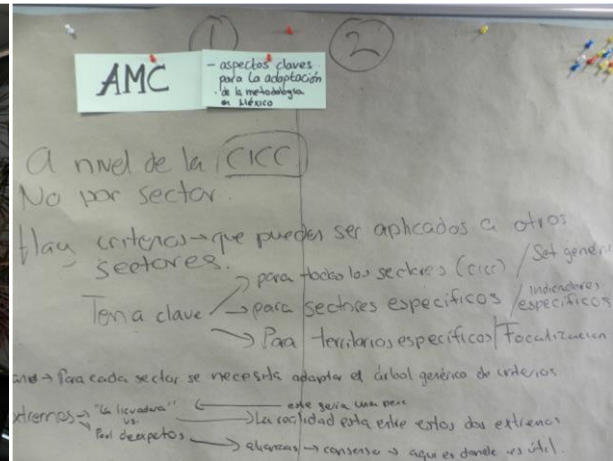 1
2
AMC
- aspectos claves
para la adaptación
de la metodología
en México
A nivel de la CICC
No por sector.
Hay criterios → que pueden ser aplicados a otros
sectores.
Tema clave
→ para todos los sectores (CICC) / Set
→ para sectores específicos / Indicadores específicos
→ Para territorios específicos / Focalización
→ Para cada sector se necesita adaptar el árbol genérico de criterios
→ "La licuadora" ← este sería una
vs.
Panel de expertos
→ La realidad esta entre estos dos extremos
→ alianzas → consenso → aqui es donde es útil.